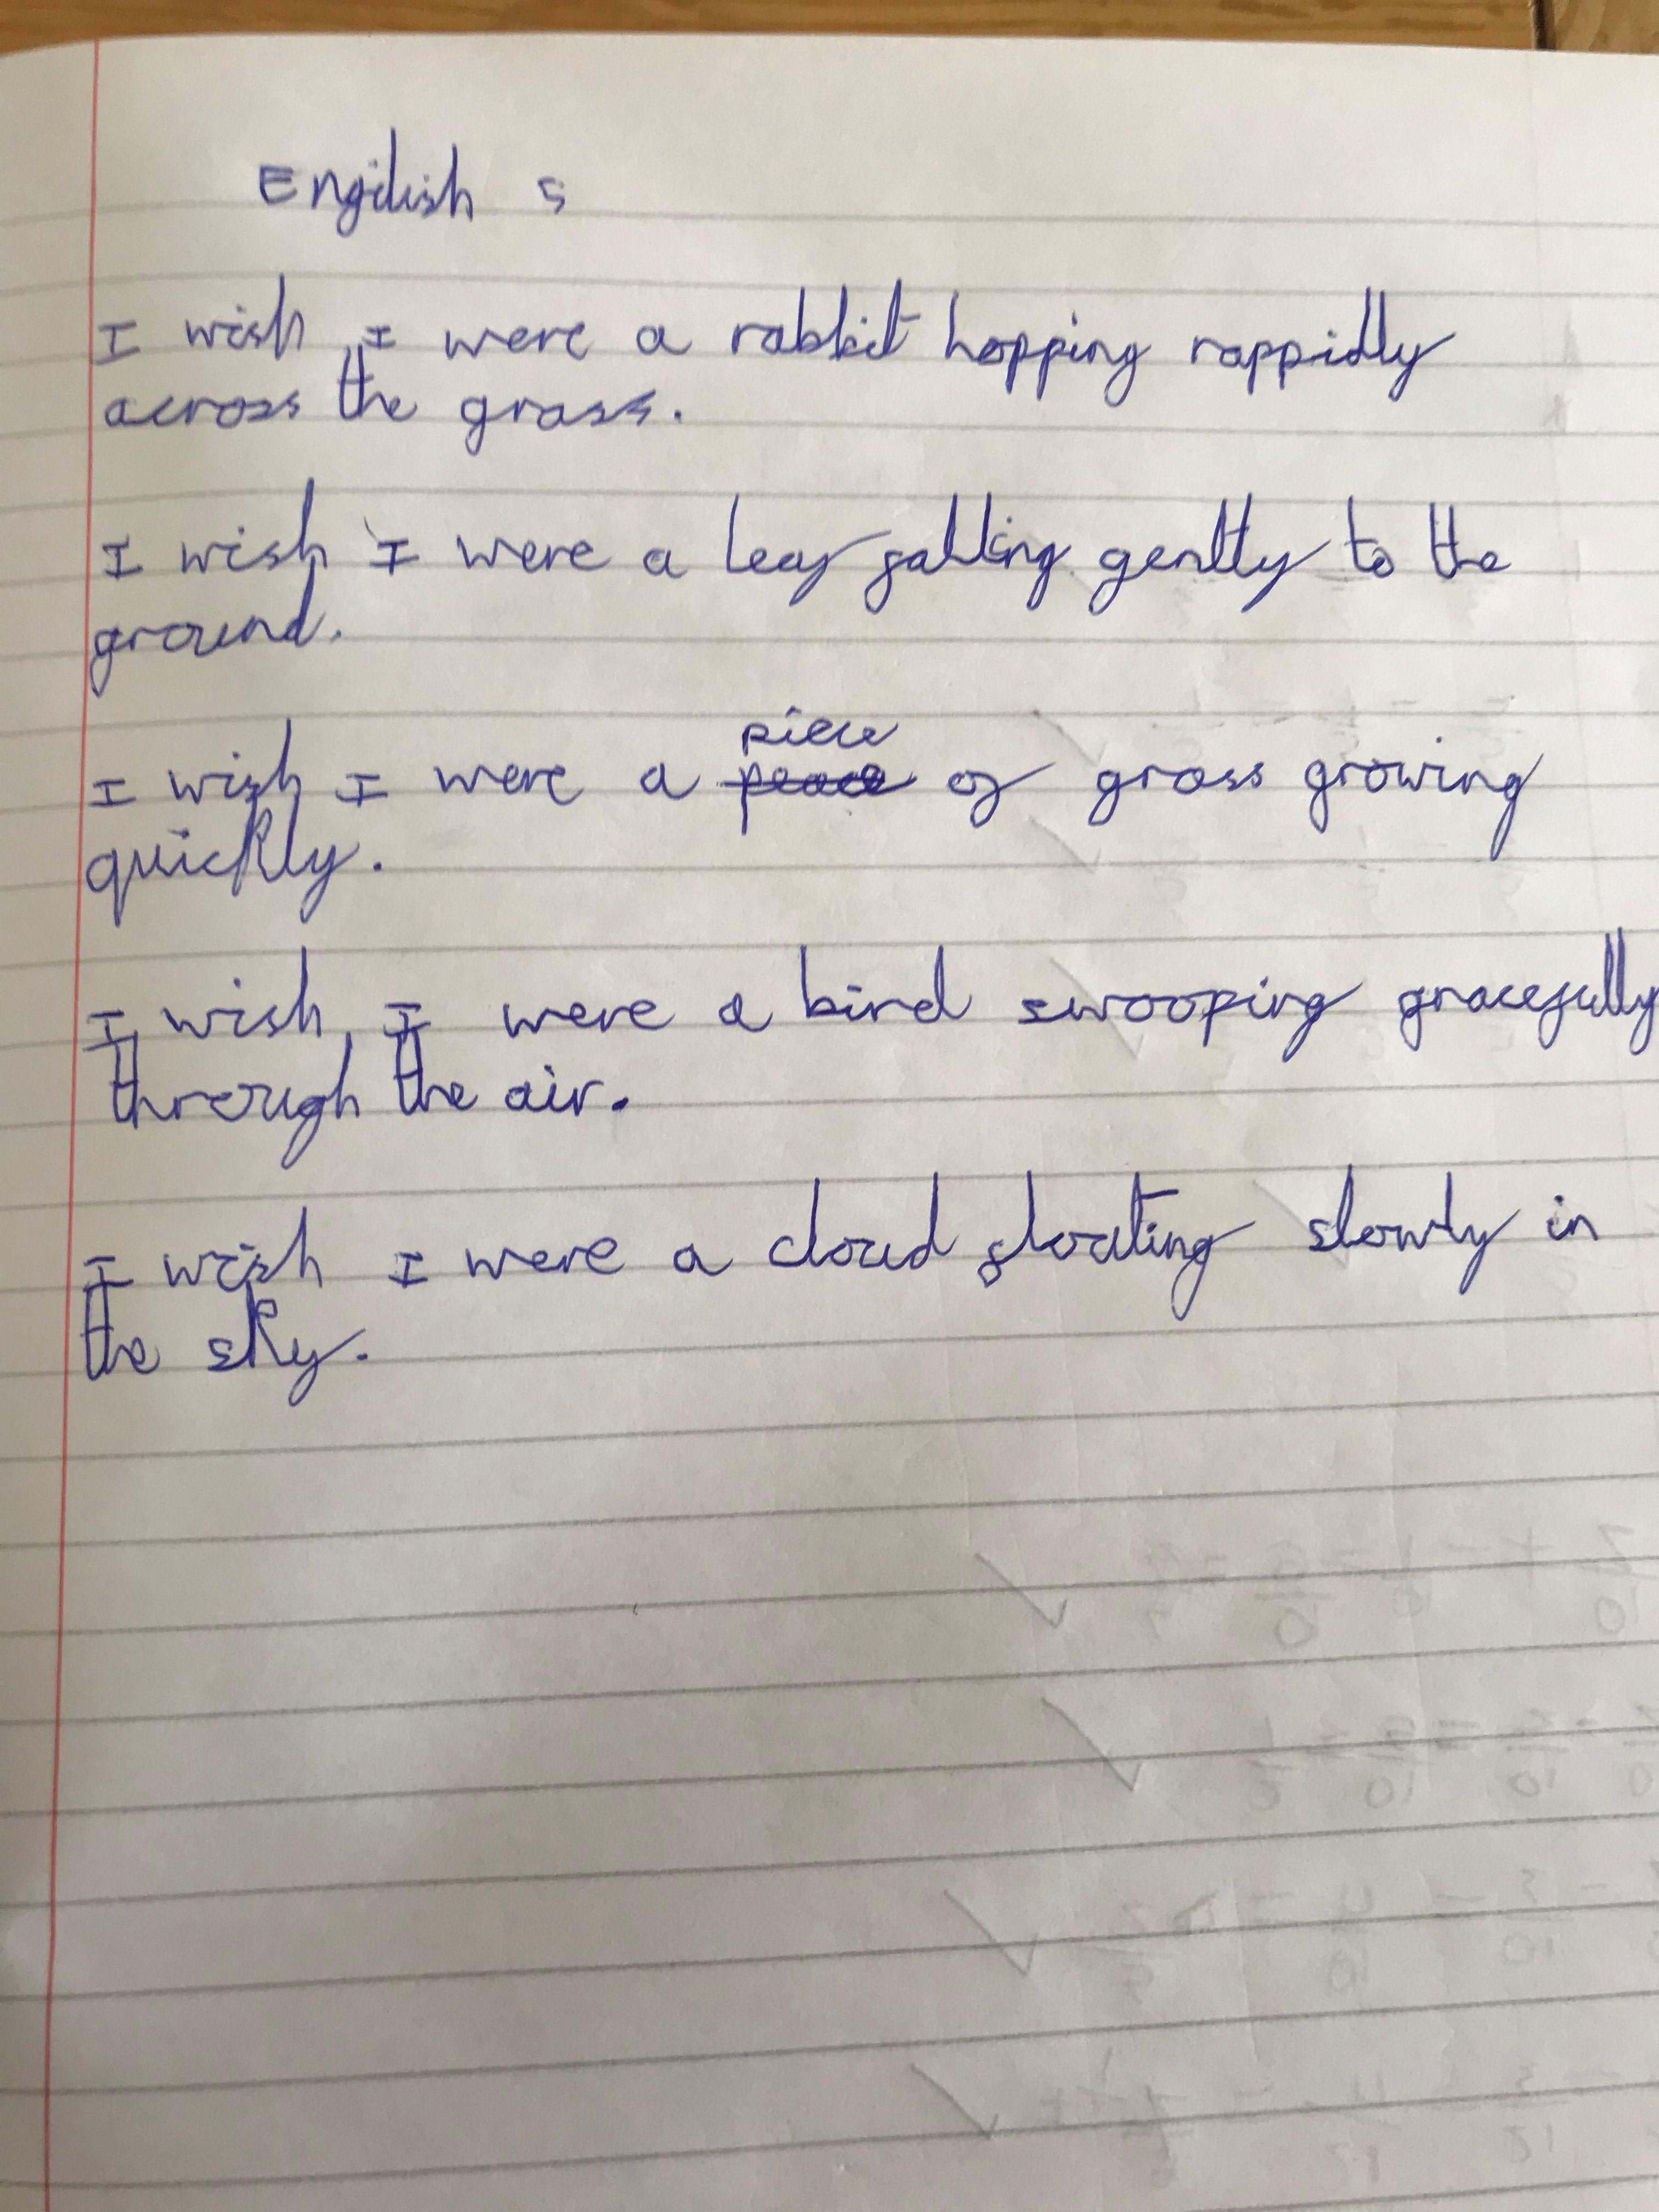 Engilish 5
I wish I were a rabbit hopping rappidly
across the grass.
I wish I were a leaf falling gently to the
ground.
piece
I wish I were a peace of grass growing
quickly.
I wish I were a bird swooping gracefully
through the air.
I wish I were a cloud floating slowly in
the sky.